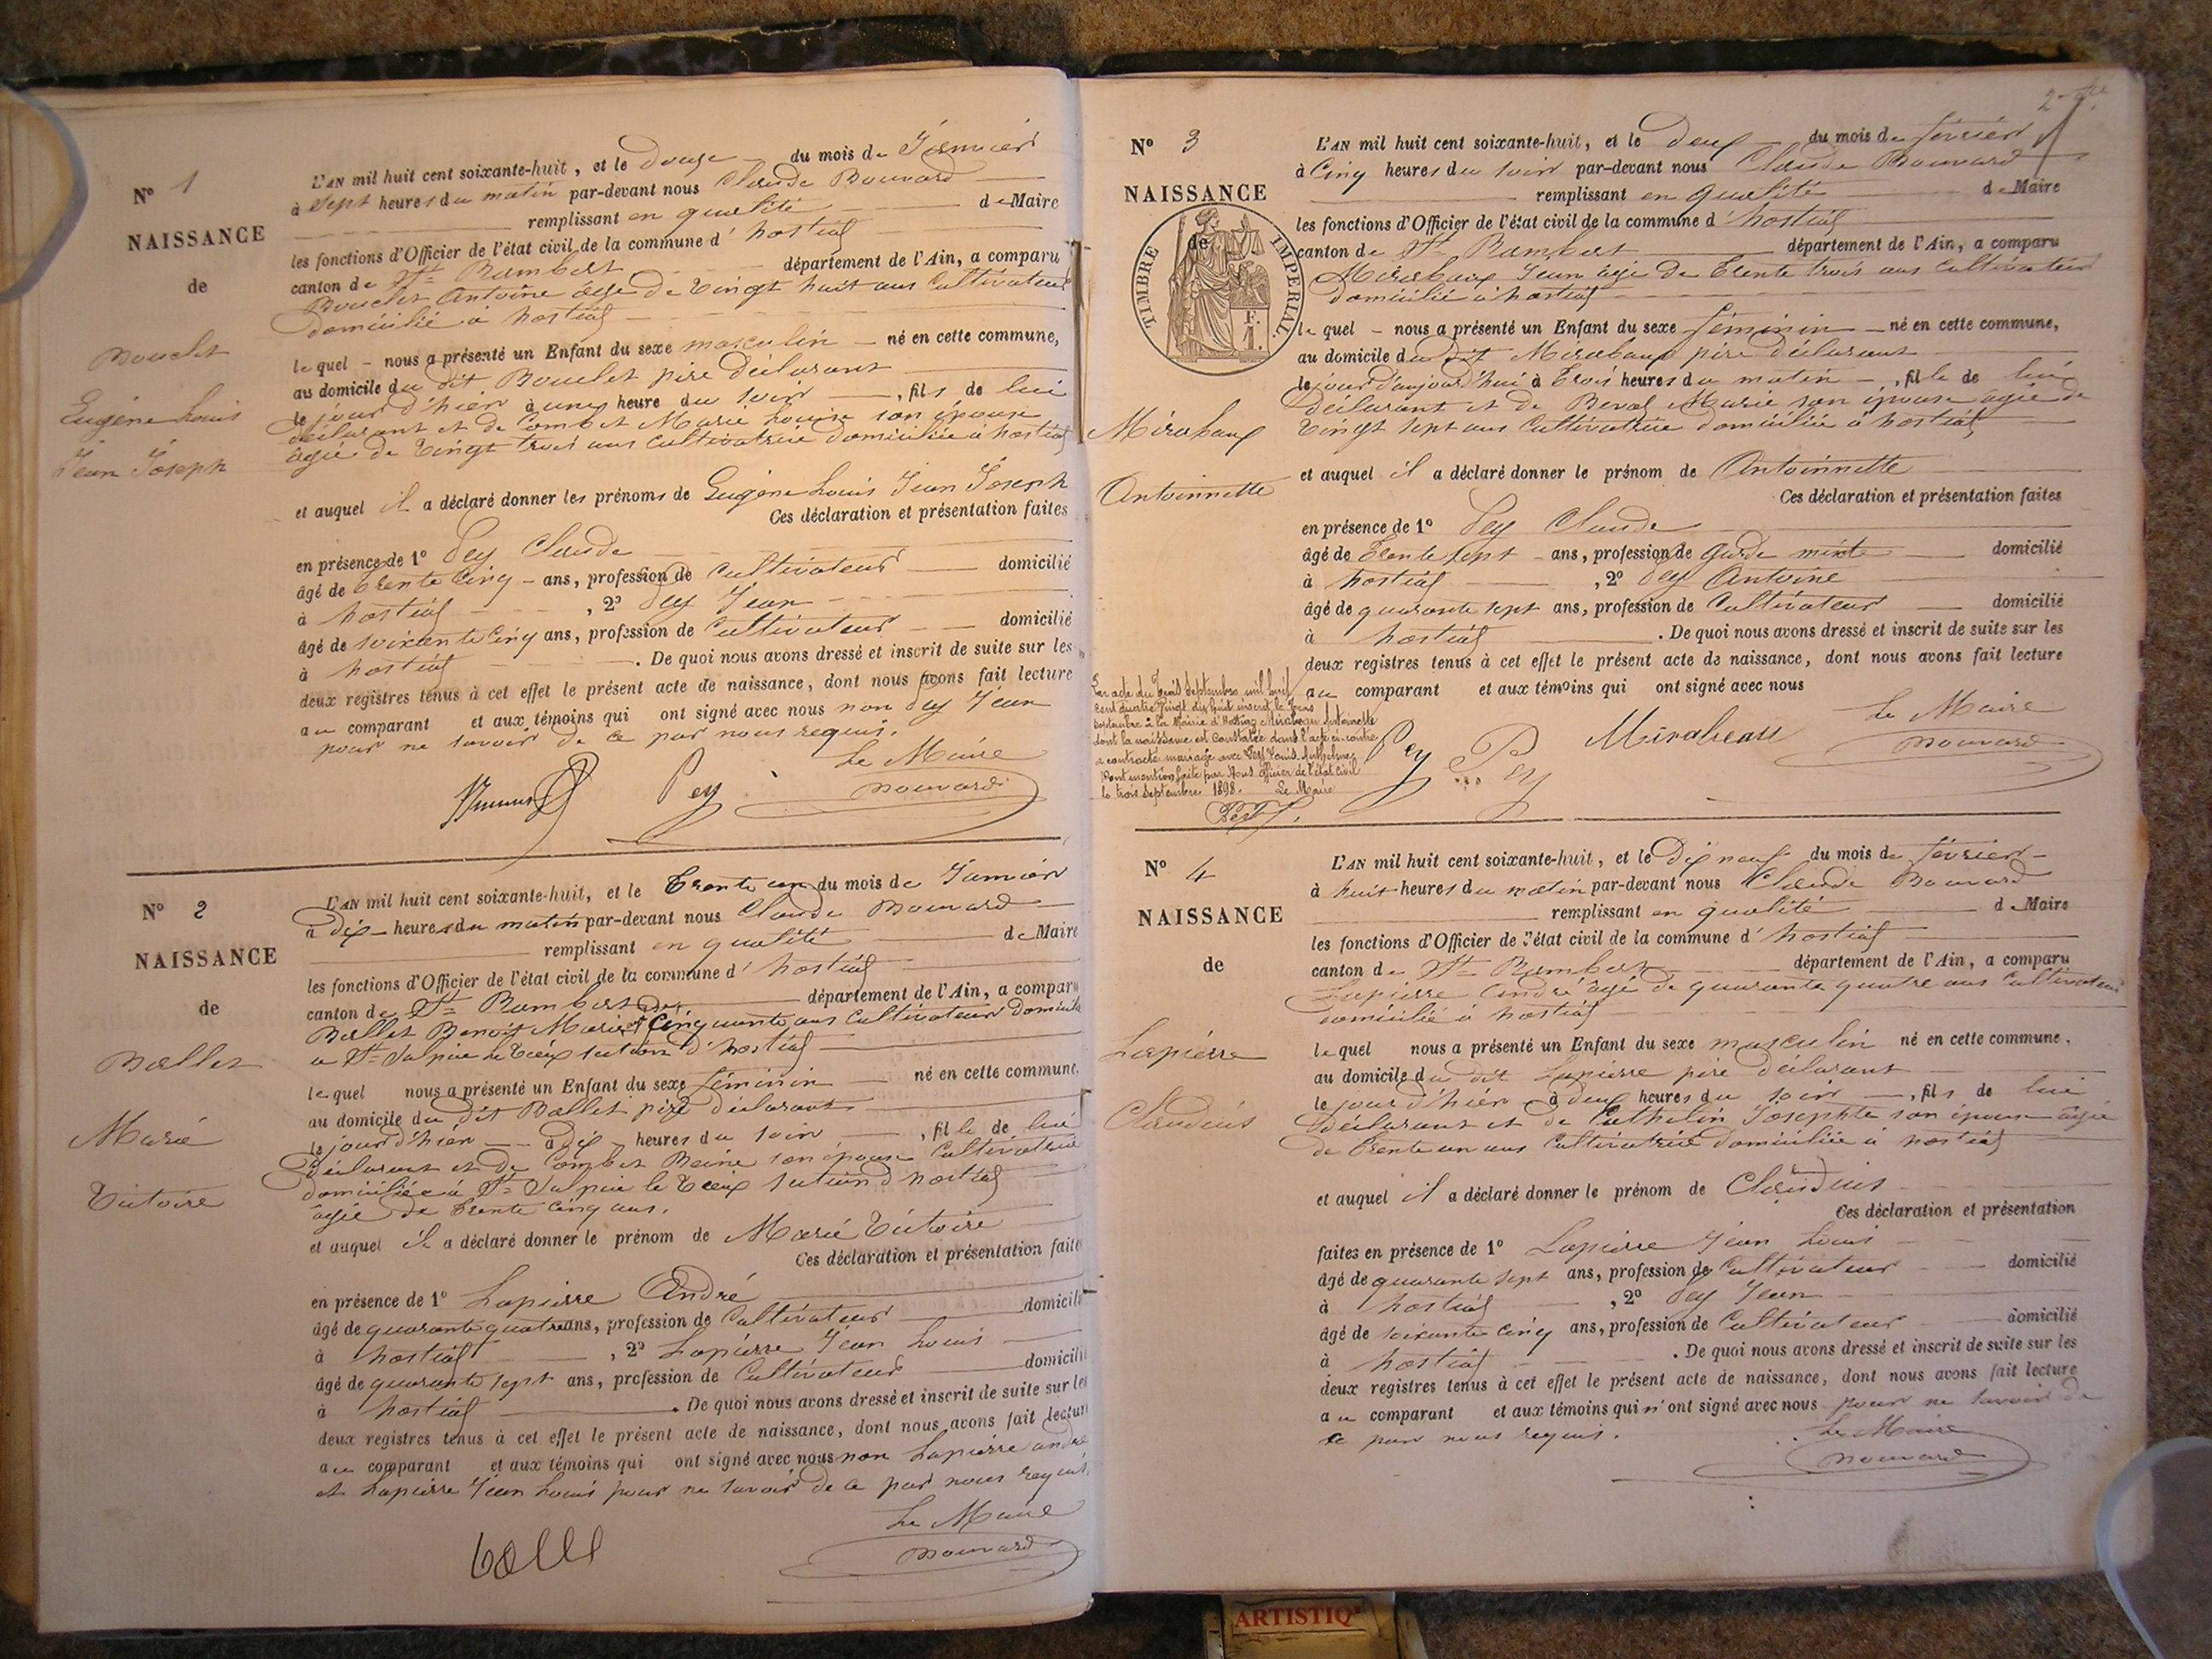 Nº 1
NAISSANCE
de
Bouclet
Eugène Louis
Jean Joseph
L'AN mil huit cent soixante-huit, et le Douze du mois de Janvier
à Sept heures du matin par-devant nous Claude Bouvard
remplissant en qualité de Maire
les fonctions d'Officier de l'état civil de la commune d'hostiaz
canton de St Rambert département de l'Ain, a comparu
Bouclet Antoine âgé de vingt huit ans Cultivateur
domicilié à hostiaz
lequel nous a présenté un Enfant du sexe masculin né en cette commune,
au domicile du dit Bouclet père déclarant
le jour d'hier à une heure du soir, fils de lui
déclarant et de Combet Marie Louise son épouse
âgée de vingt trois ans cultivatrice domiciliée à hostiaz
et auquel il a déclaré donner les prénoms de Eugène Louis Jean Joseph
Ces déclaration et présentation faites
en présence de 1º Pey Claude
âgé de trente cinq ans, profession de Cultivateur domicilié
à hostiaz, 2º Pey Jean
âgé de soixante cinq ans, profession de Cultivateur domicilié
à hostiaz. De quoi nous avons dressé et inscrit de suite sur les
deux registres tenus à cet effet le présent acte de naissance, dont nous avons fait lecture
au comparant et aux témoins qui ont signé avec nous non Pey Jean
pour ne savoir de ce par nous requis.
Le Maire
Pey
Bouvard
Nº 2
NAISSANCE
de
Ballet
Marie
Victoire
L'AN mil huit cent soixante-huit, et le Trente un du mois de Janvier
à dix heures du matin par-devant nous Claude Bouvard
remplissant en qualité de Maire
les fonctions d'Officier de l'état civil de la commune d'hostiaz
canton de St Rambert département de l'Ain, a comparu
Ballet Benoit Marie âgé de Cinquante ans Cultivateur domicilié
à St Sulpice le Vieux section d'hostiaz
lequel nous a présenté un Enfant du sexe féminin né en cette commune,
au domicile du dit Ballet père déclarant
le jour d'hier à dix heures du soir, fille de lui
déclarant et de Combet Reine son épouse Cultivatrice
domiciliée à St Sulpice le Vieux section d'hostiaz
âgée de trente cinq ans.
et auquel il a déclaré donner le prénom de Marie Victoire
Ces déclaration et présentation faite
en présence de 1º Lapierre André
âgé de quarante quatre ans, profession de Cultivateur domicilié
à hostiaz, 2º Lapierre Jean Louis
âgé de quarante sept ans, profession de Cultivateur domicilié
à hostiaz. De quoi nous avons dressé et inscrit de suite sur les
deux registres tenus à cet effet le présent acte de naissance, dont nous avons fait lecture
au comparant et aux témoins qui ont signé avec nous non Lapierre andré
et Lapierre Jean Louis pour ne savoir de ce par nous requis.
Le Maire
Bouvard
Nº 3
NAISSANCE
de
TIMBRE IMPERIAL
Mirabaux
Antoinnette
L'AN mil huit cent soixante-huit, et le Deux du mois de février
à Cinq heures du soir par-devant nous Claude Bouvard
remplissant en qualité de Maire
les fonctions d'Officier de l'état civil de la commune d'hostiaz
canton de St Rambert département de l'Ain, a comparu
Mirabaux Jean âgé de Trente trois ans Cultivateur
domicilié à hostiaz
lequel nous a présenté un Enfant du sexe féminin né en cette commune,
au domicile du dit Mirabaux père déclarant
le jour d'aujourd'hui à trois heures du matin, fille de lui
déclarant et de Marie son épouse âgée de
vingt sept ans Cultivatrice domiciliée à hostiaz
et auquel il a déclaré donner le prénom de Antoinnette
Ces déclaration et présentation faites
en présence de 1º Pey Claude
âgé de Trente sept ans, profession de garde mixte domicilié
à hostiaz, 2º Pey Antoine
âgé de quarante sept ans, profession de Cultivateur domicilié
à hostiaz. De quoi nous avons dressé et inscrit de suite sur les
deux registres tenus à cet effet le présent acte de naissance, dont nous avons fait lecture
au comparant et aux témoins qui ont signé avec nous
Par acte du trois septembre mil huit
cent quatre vingt dix huit inscrit le trois
septembre à la Mairie d'Hostiaz Mirabeau Antoinette
dont la naissance est constatée dans l'acte ci-contre
a contracté mariage avec Pey Louis Anthelme
Dont mention faite par Nous officier de l'état civil
le trois septembre 1898. Le Maire
Pey Pey Mirabeau
Le Maire
Bouvard
Nº 4
NAISSANCE
de
Lapierre
Claudius
L'AN mil huit cent soixante-huit, et le Dix neuf du mois de février
à huit heures du matin par-devant nous Claude Bouvard
remplissant en qualité de Maire
les fonctions d'Officier de l'état civil de la commune d'hostiaz
canton de St Rambert département de l'Ain, a comparu
Lapierre André âgé de quarante quatre ans Cultivateur
domicilié à hostiaz
lequel nous a présenté un Enfant du sexe masculin né en cette commune,
au domicile du dit Lapierre père déclarant
le jour d'hier à deux heures du soir, fils de lui
déclarant et de Cathelin Josephte son épouse âgée
de trente un ans Cultivatrice domiciliée à hostiaz
et auquel il a déclaré donner le prénom de Claudius
Ces déclaration et présentation
faites en présence de 1º Lapierre Jean Louis
âgé de quarante sept ans, profession de Cultivateur domicilié
à hostiaz, 2º Pey Jean
âgé de soixante cinq ans, profession de Cultivateur domicilié
à hostiaz. De quoi nous avons dressé et inscrit de suite sur les
deux registres tenus à cet effet le présent acte de naissance, dont nous avons fait lecture
au comparant et aux témoins qui n'ont signé avec nous pour ne savoir de
ce par nous requis.
Le Maire
Bouvard
ARTISTIQ